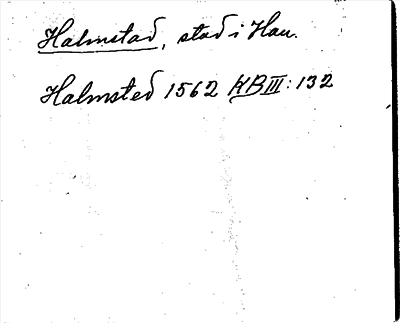 Halmstad, stad i Hall.
Halmsted 1562 KB III: 132